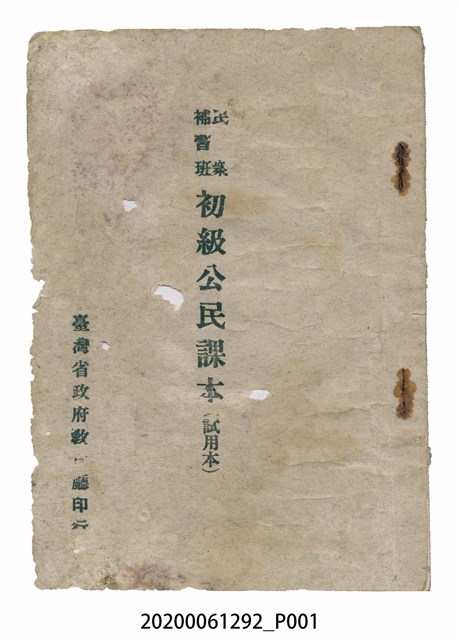 民眾
補習班
初級公民課本(試用本)
臺灣省政府教廳印行
20200061292_P001